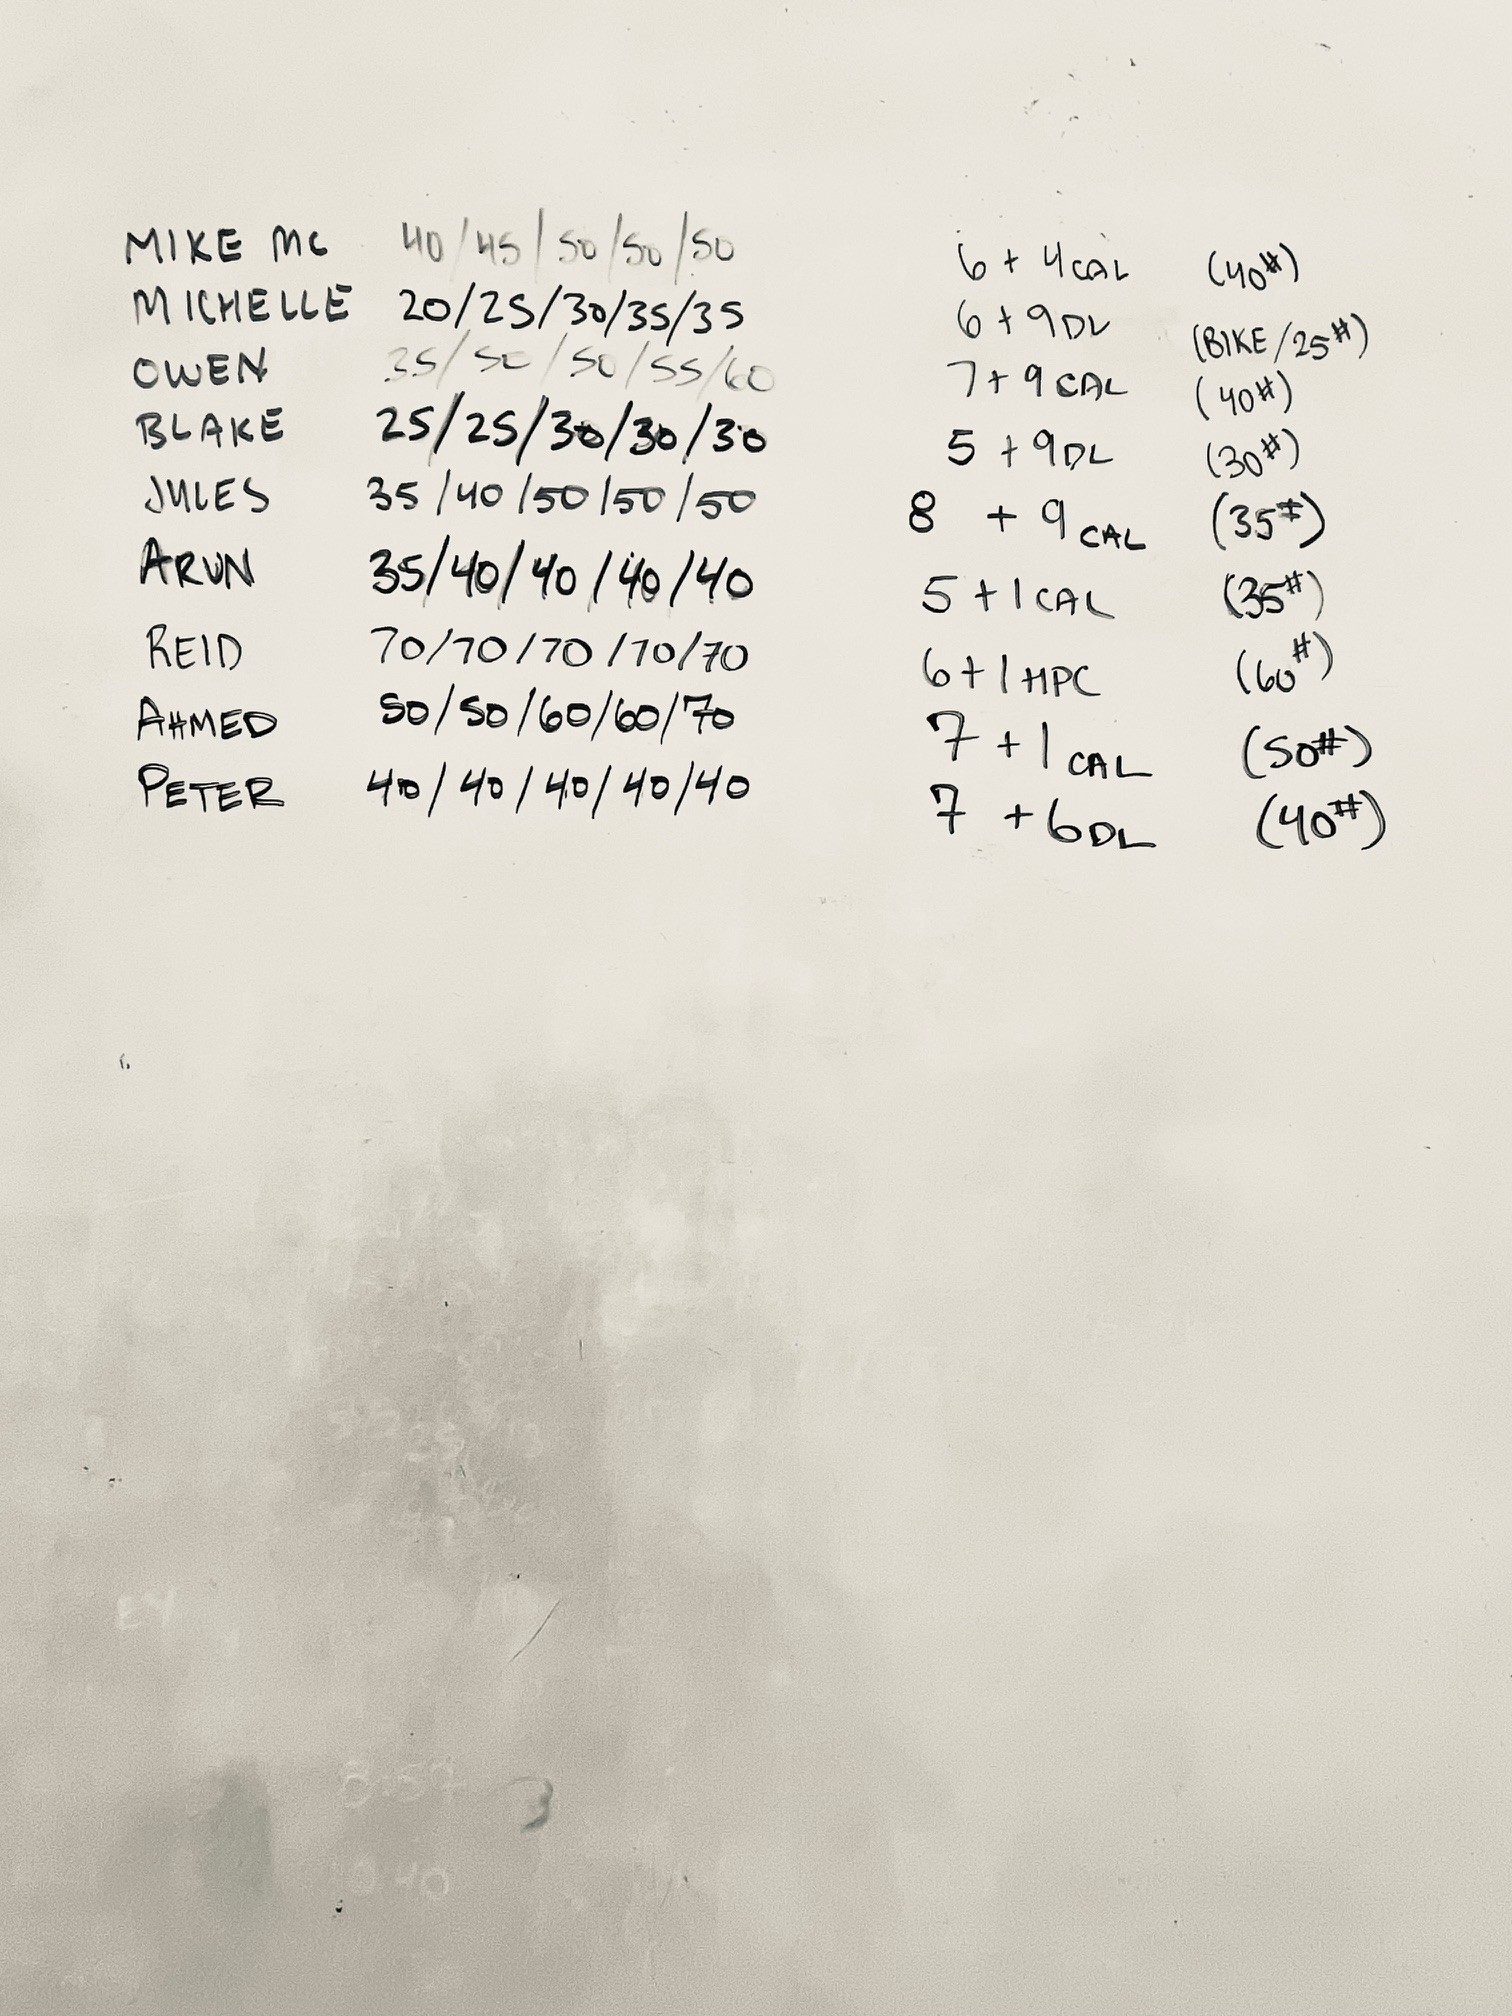 MIKE MC 40/45/50/50/50 6 + 4 CAL (40#)
MICHELLE 20/25/30/35/35 6 + 9 DL (BIKE/25#)
OWEN 35/50/50/55/60 7 + 9 CAL (40#)
BLAKE 25/25/30/30/30 5 + 9 DL (30#)
JULES 35/40/50/50/50 8 + 9 CAL (35#)
ARUN 35/40/40/40/40 5 + 1 CAL (35#)
REID 70/70/70/70/70 6 + 1 HPC (60#)
AHMED 50/50/60/60/70 7 + 1 CAL (50#)
PETER 40/40/40/40/40 7 + 6 DL (40#)